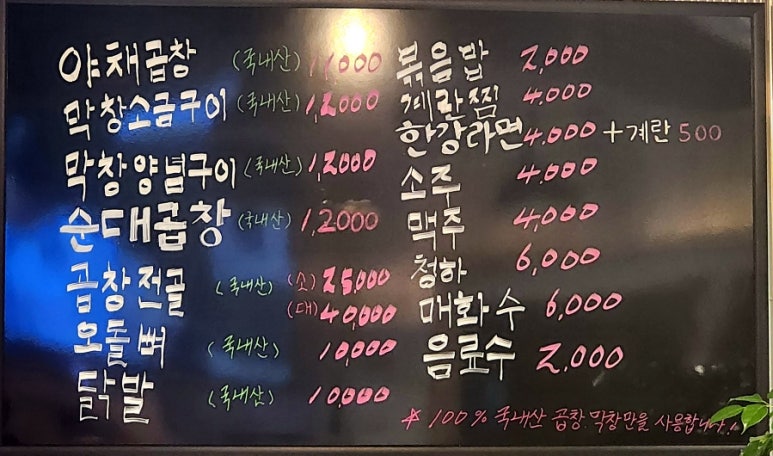 야채곱창 (국내산) 11,000
막창소금구이 (국내산) 1,2000
막창양념구이 (국내산) 1,2000
순대곱창 (국내산) 1,2000
곱창전골 (국내산) (소) 25,000
(대) 40,000
오돌뼈 (국내산) 10,000
닭발 (국내산) 10,000
볶음밥 2,000
계란찜 4.000
한강라면 4.000 + 계란 500
소주 4,000
맥주 4,000
청하 6,000
매화수 6,000
음료수 2,000
☆ 100% 국내산 곱창 막창만을 사용합니다!